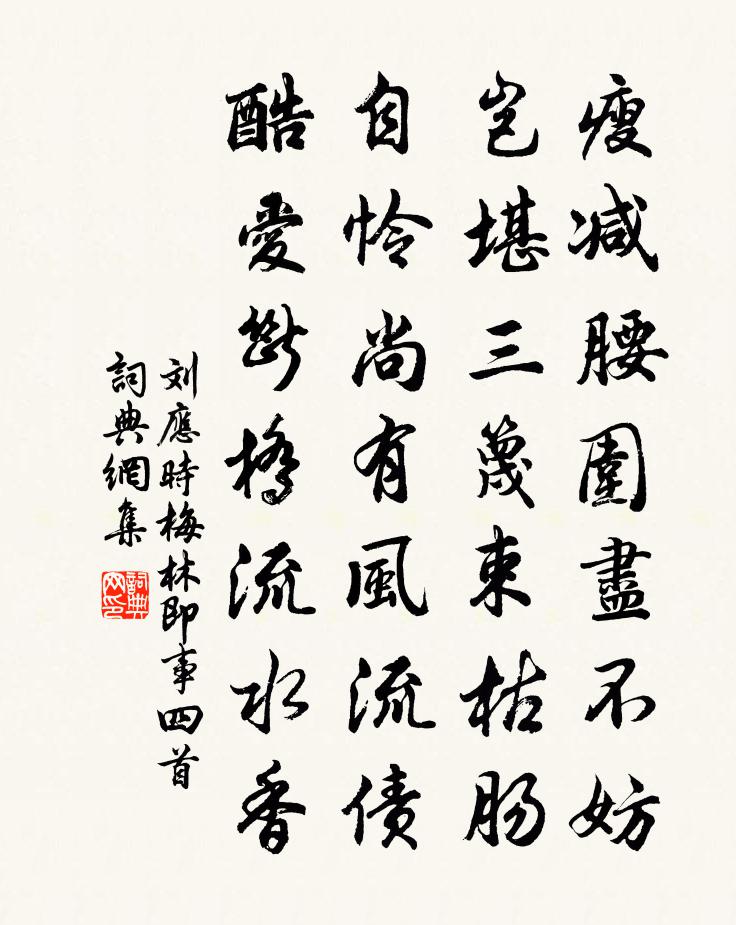 瘦减腰圍盡不妨
豈堪三篾束枯肠
自怜尚有風流債
酷愛斷橋流水香
刘應時梅林即事四首
詞典網集
詞典网印